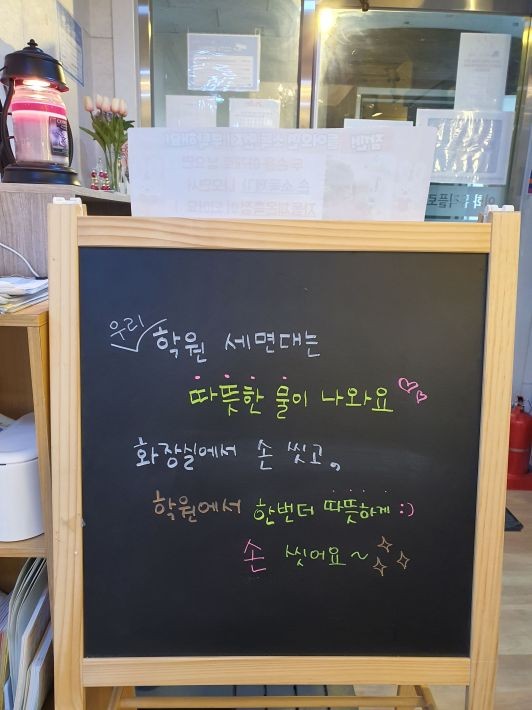 우리 학원 세면대는
따뜻한 물이 나와요
화장실에서 손 씻고,
학원에서 한번더 따뜻하게 :)
손 씻어요~